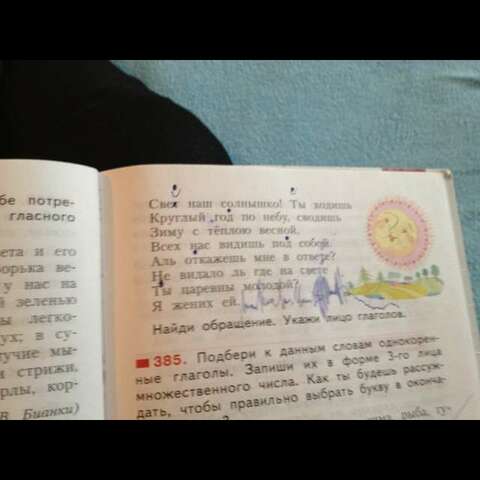 бе потре-
гласного
вета и его
орька ве-
у нас на
й зеленью
ы легко-
ух; в су-
учие мы-
и стрижи,
рлы, кор-
В. Бианки)
Свет наш солнышко! Ты ходишь
Круглый год по небу, сводишь
Зиму с тёплою весной,
Всех нас видишь под собой.
Аль откажешь мне в ответе?
Не видало ль где на свете
Ты царевны молодой?
Я жених ей.
Найди обращение. Укажи лицо глаголов.
385. Подбери к данным словам однокорен-
ные глаголы. Запиши их в форме 3-го лица
множественного числа. Как ты будешь рассуж-
дать, чтобы правильно выбрать букву в оконча-
рыба, гу-